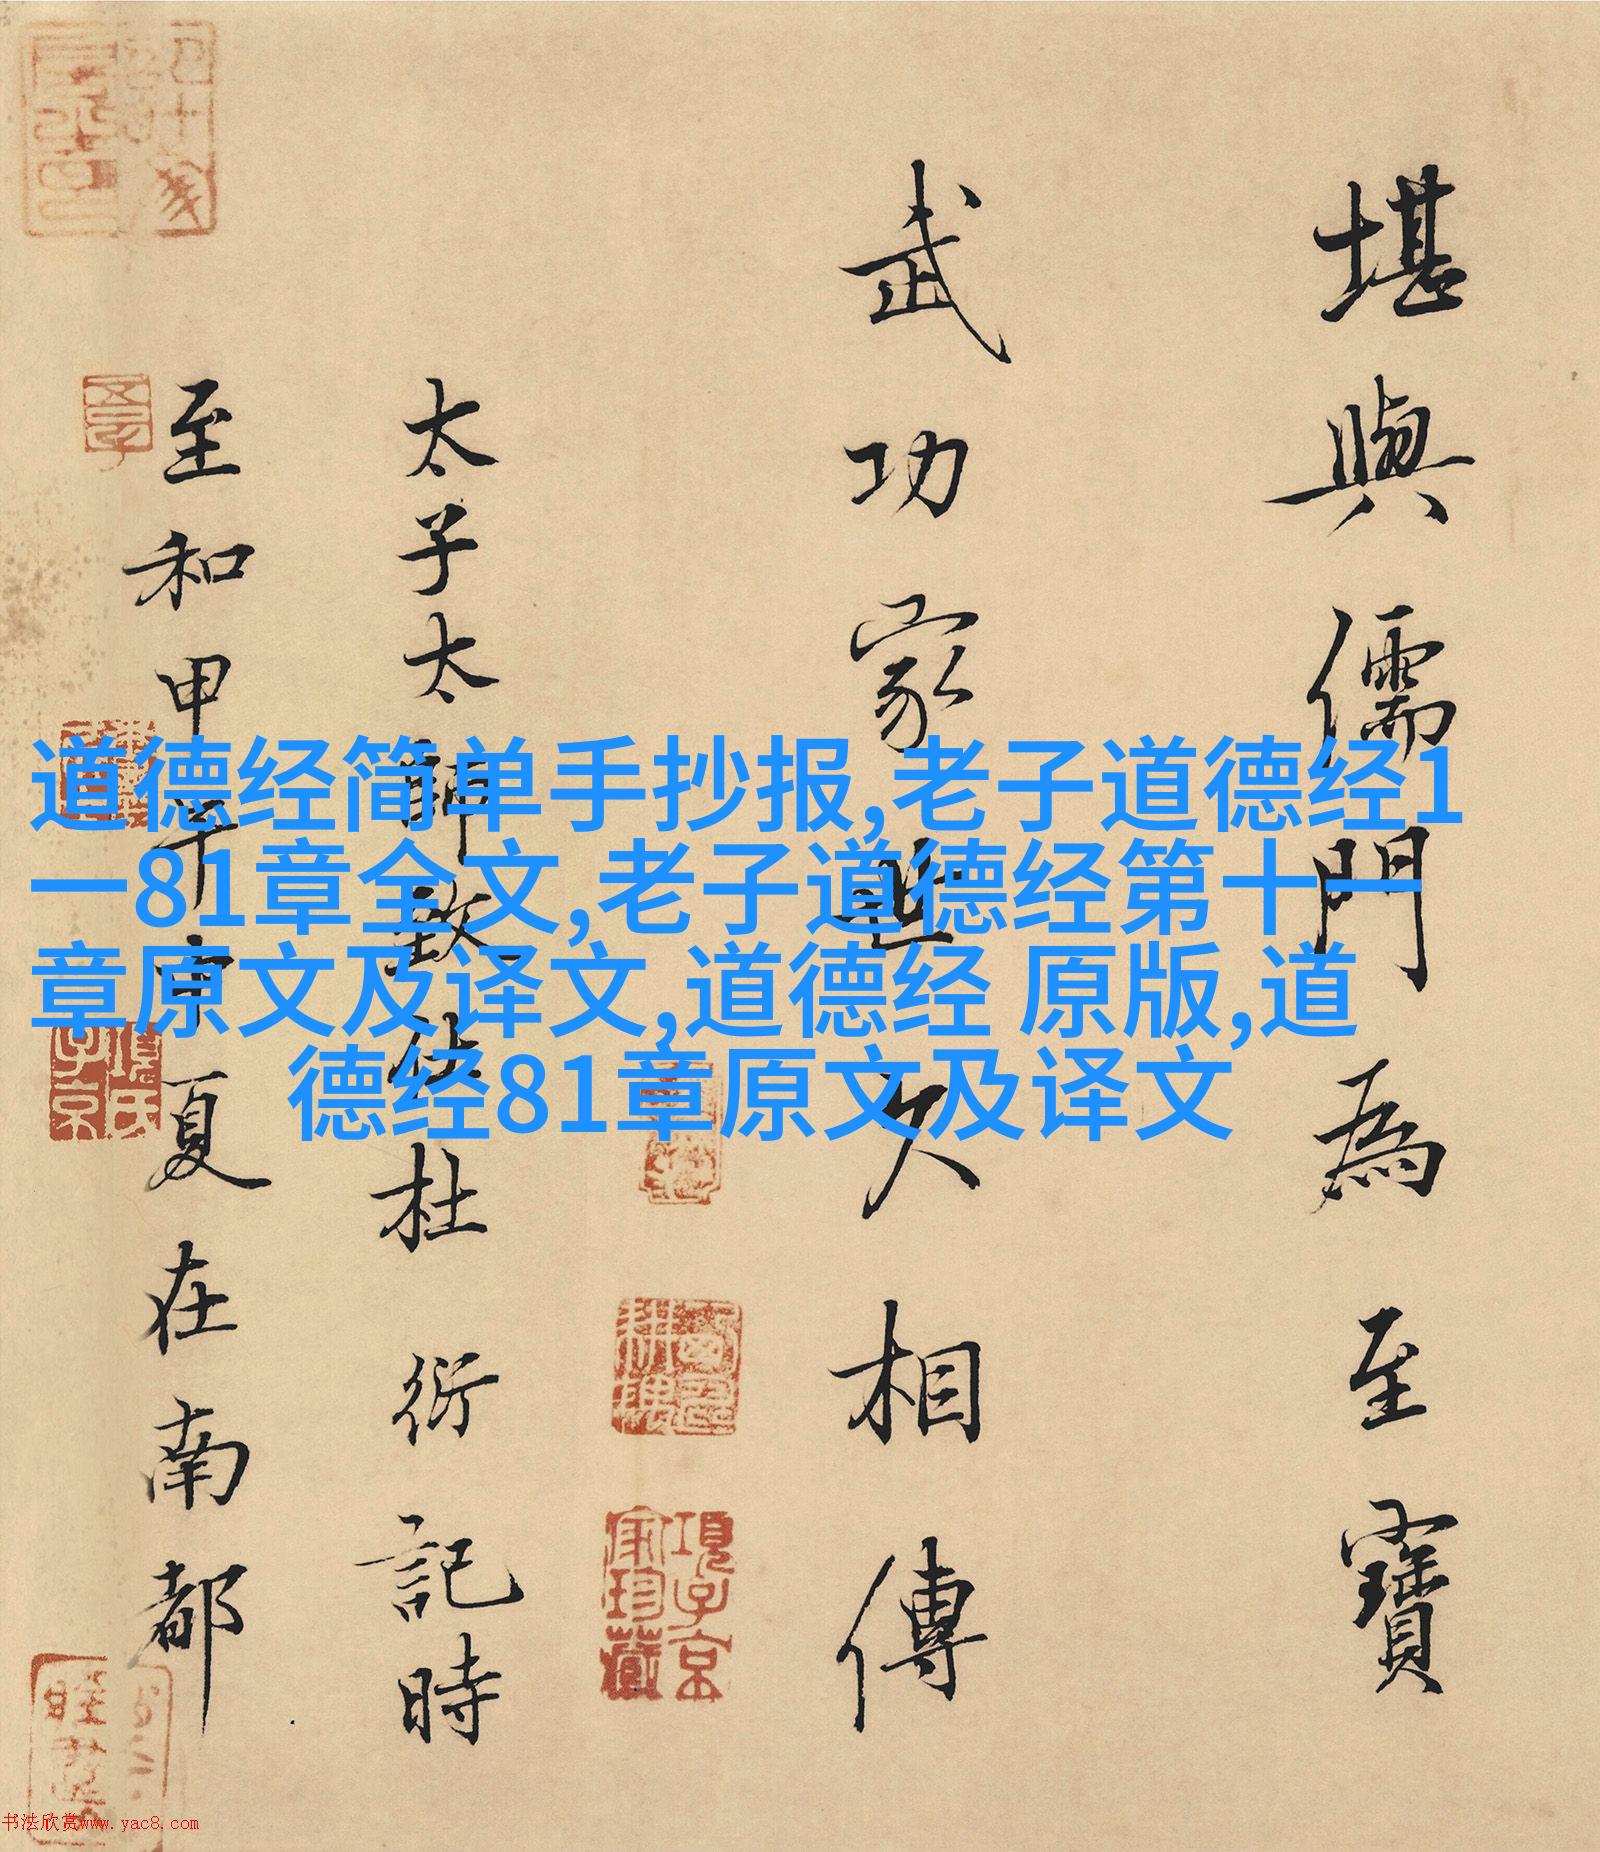 堪與儒門為至寶
武功家世久相傳
太子太師致仕杜衍記時
至和甲午中夏在南都
道德经简单手抄报,老子道德经1
一81章全文,老子道德经第十一
章原文及译文,道德经 原版,道
德经81章原文及译文
項子京
家珍藏
項氏
子京
书法欣赏www.yac8.com